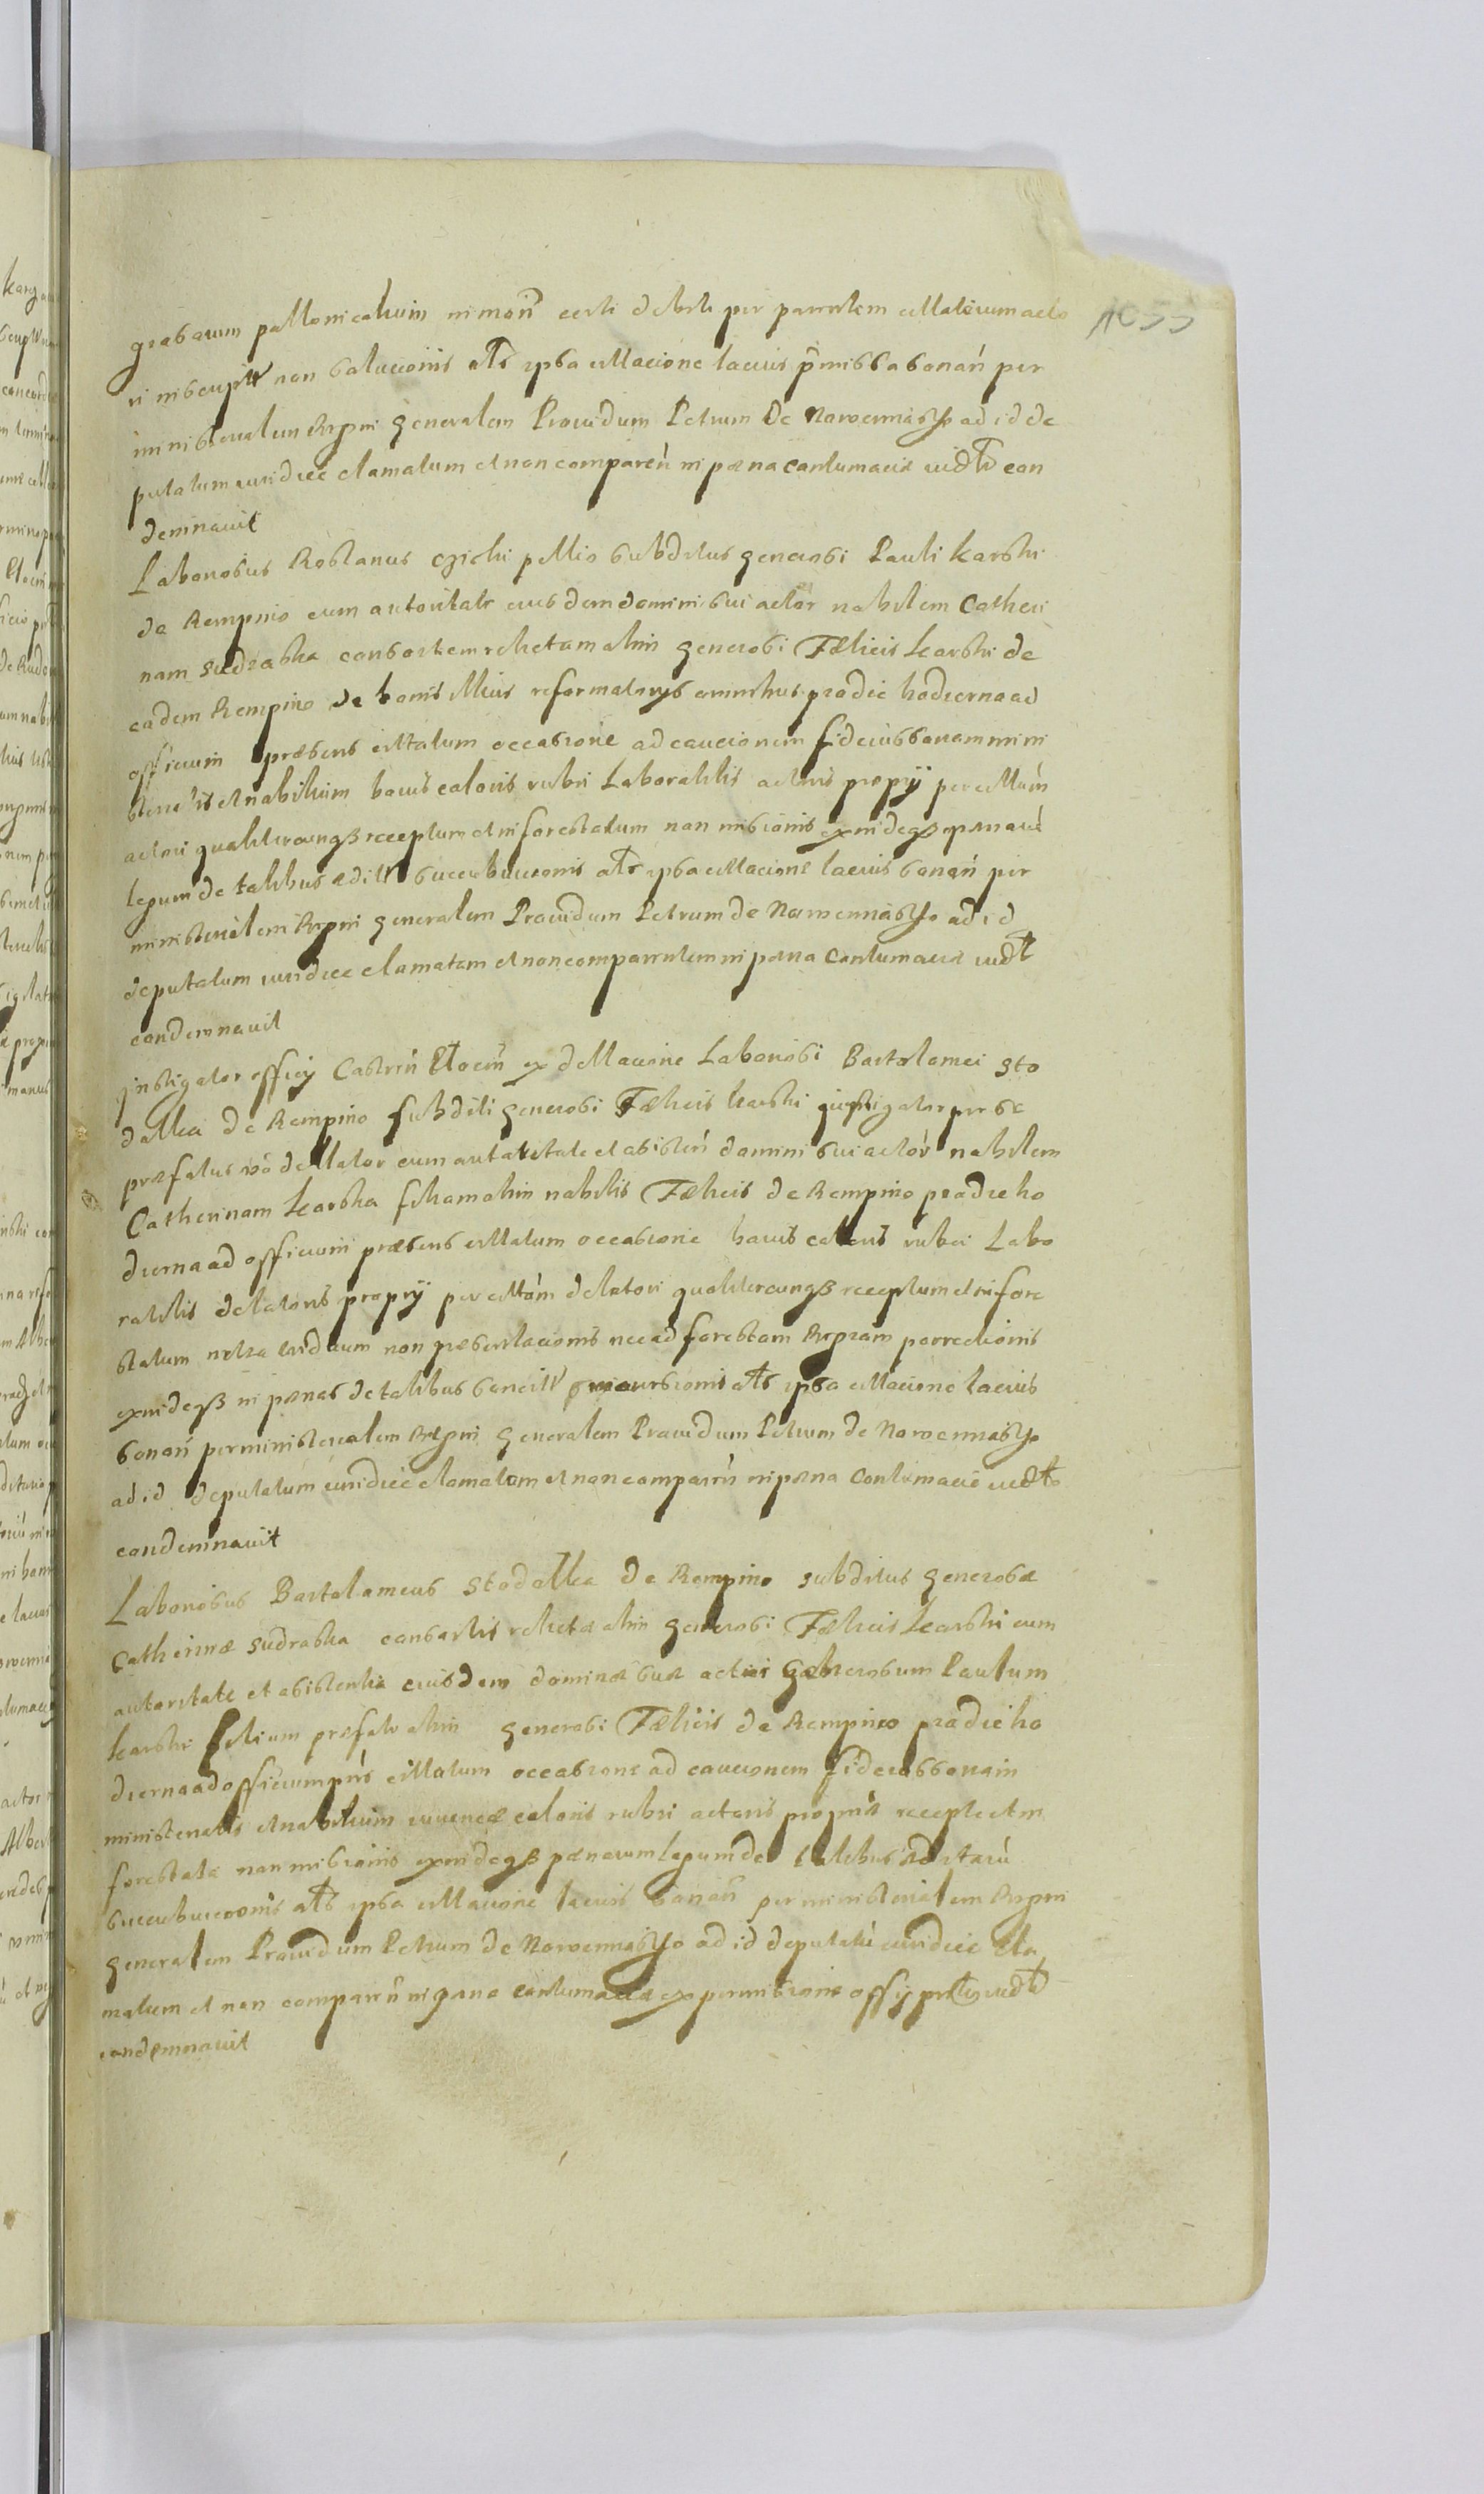 1033
grosarum pollonicalium in moñ certi debiti per parentem citatorum acto
ri inscript non solucionis als ipsa citacione lacius p̃missa sonañ per
ministerialem Regni generalem Providum Petrum De Narwemiasto ad id de
putatum iuridice clamatum et non compareñ in pœna contumaciæ iudt con
demnavit
Laboriosus pellio subditus generosi Pauli Karski
de Rempino cum autoritate eiusdem domini sui actor nobilem Catheri
nam Sudraska consortem relictam olim generosi Fælicis Karski de
eadem Rempino de bonis illius reformatorys omnibus pro die hodierna ad
officium præsens citatam occasione ad caucionem fideiussoriam mini
sterialis et nobilium bovis coloris rubri Laborabilis actoris propry per citatam
actori qualitercunqß receptum et inforestatum non missionis exindeqß pœnarum
legum de talibus edit succubucionis als ipsa citacione lacius sonañ per
ministerialem Regni generalem Providum Petrum de Narwemiasto ad id
deputatum iuridice clamatam et non comparentem in pœna Contumaciæ iudt
condemnavit
Instigator officy Castreñ Ploceñ ex dellacione Laboriosi Bartolomei Sto
dolka de Rempino subditi generosi Fælicis Karski instigator per se
præfatus vō dellator cum autoritate et asisteñ domini sui actor nobilem
Catherinam Karska filiam olim nobilis Fælicis de Rempino pro die ho
dierna ad officium præsens citatam occasione bovis coloris rubri Labo
rabilis delatoris propry per citatam delatori qualitercunqß receptum et infore
statum intra triduum non præsentacionis nec ad forestam Regiam porrectionis
exindeqß in pœnas de talibus sancit incursionis als ipsa citacione lacius
sonañ per ministerialem Regni generalem Providum Petrum de Narwemiasto
ad id deputatum iuridice clamatam et non compareñ in pœna Contumaciæ iudt
condemnavit
Laboriosus Bartolomeus Stodolka de Rempino subditus generosæ
Catherinæ Sudraska consortis relictæ olim generosi Fælicis Karski cum
autoritate et asistentia eiusdem dominæ suæ actor Generosum Paulum
Karski filium præfati olim generosi Fælicis de Rempino pro die ho
dierna ad officium pñs citatum occasione ad caucionem fideiussoriam
ministerialis et nobilium iuvencæ coloris rubri actoris propriæ receptæ et in
forestatæ non missionis exindeqß pœnarum legum de talibus
succubucionis als ipsa citacione lacius sonañ per ministerialem Regni
generalem Providum Petrum de Narwemiasto ad id deputatū iuridice cla
matum et non compareñ in pœna contumaciæ ex permissione offy iudt
condemnavit